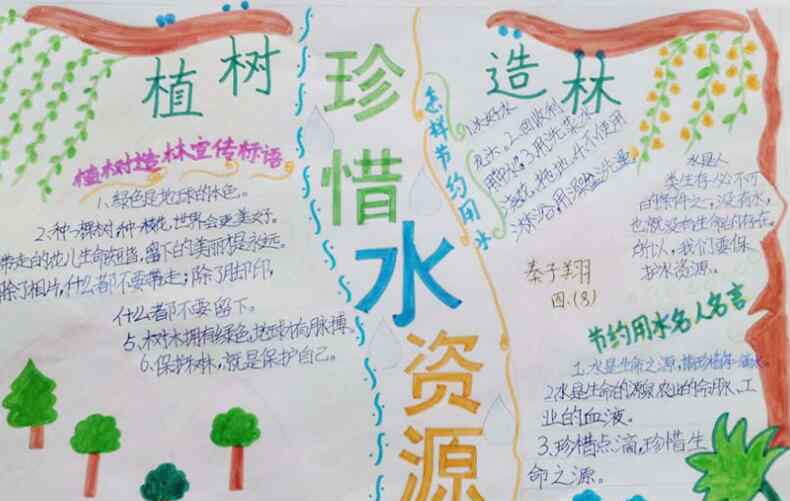 植树
造林
珍惜水资源
植树造林宣传标语
1、绿色是地球的本色。
2、种一棵树,种一棵花,世界会更美好。
带走的花儿生命短暂,留下的美丽才是永远。
除了相片,什么都不要带走;除了脚印,
什么都不要留下。
5、树木拥有绿色,地球才有脉搏。
6、保护树林,就是保护自己。
怎样节约用水
1、关好水
龙头。2、回收利
用水。3、用洗菜水
浇花、拖地。4、不使用
淋浴,用澡盆洗澡
水是人
类生存必不可
的条件之一,没有水,
也就没有生命的存在。
所以,我们要保
护水资源。
秦子翔
四.(8)
节约用水名人名言
1、水是生命之源,请珍惜每一滴水。
2、水是生命的源泉、农业的命脉、工
业的血液。
3、珍惜点滴,珍惜生
命之源。